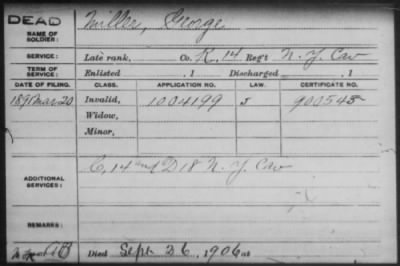 DEAD
NAME OF SOLDIER: Miller, George
SERVICE: Late rank, Co. K, 14 Reg't N. Y. Cav
TERM OF SERVICE: Enlisted , 1 Discharged , 1
DATE OF FILING. CLASS. APPLICATION NO. LAW. CERTIFICATE NO.
Mar 20 Invalid, 1004199 900545
Widow,
Minor,
ADDITIONAL SERVICES: C, 14 and D 18 N. Y. Cav
REMARKS:
Died Sept 26, 1906 at